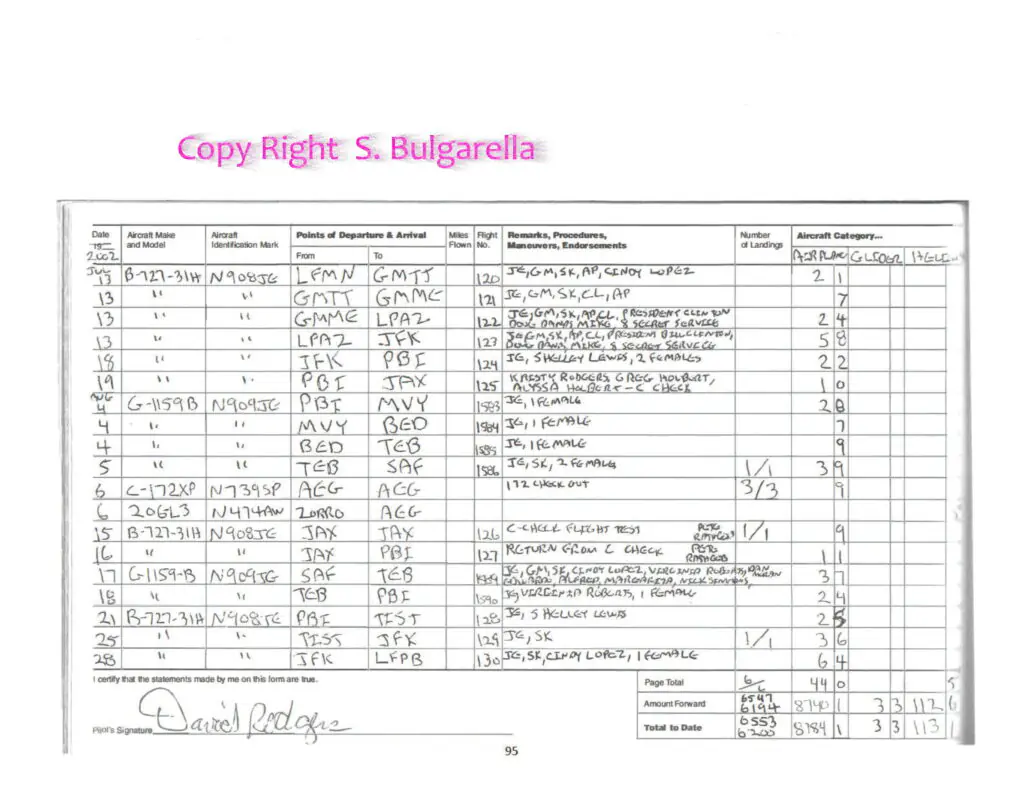 Copy Right S. Bulgarella
Date Aircraft Make Aircraft Points of Departure & Arrival Miles Flight Remarks, Procedures, Number Aircraft Category...
19 and Model Identification Mark Flown No. Maneuvers, Endorsements of Landings
2002 From To AIRPLANE GLIDER HELI
JUL 13 B-727-31H N908JE LFMN GMTT 120 JE, GM, SK, AP, CINDY LOPEZ 2 1
13 " " GMTT GMME 121 JE, GM, SK, CL, AP 7
13 " " GMME LPAZ 122 JE, GM, SK, AP, CL, PRESIDENT CLINTON 2 4
DOUG MIKE, 8 SECRET SERVICE
13 " " LPAZ JFK 123 JE, GM, SK, AP, CL, PRESIDENT BILL CLINTON, 5 8
DOUG MIKE, 8 SECRET SERVICE
18 " " JFK PBI 124 JE, SHELLEY LEWIS, 2 FEMALES 2 2
19 " " PBI JAX 125 KRISTY RODGERS, GREG HOLBERT, 1 0
ALYSSA HOLBERT - C CHECK
AUG 4 G-1159B N909JE PBI MVY 1583 JE, 1 FEMALE 2 8
4 " " MVY BED 1584 JE, 1 FEMALE 7
4 " " BED TEB 1585 JE, 1 FEMALE 9
5 " " TEB SAF 1586 JE, SK, 2 FEMALES 1/1 3 9
6 C-172XP N739SP AEG AEG 172 CHECK OUT 3/3 9
6 206L3 N474AW ZORRO AEG
15 B-727-31H N908JE JAX JAX 126 C-CHECK FLIGHT TEST PETE 1/1 9
16 " " JAX PBI 127 RETURN FROM C CHECK PETE 1 1
17 G-1159-B N909JE SAF TEB 1589 JE, GM, SK, CINDY LOPEZ, VIRGINIA ROBERTS, 3 7
ALFREDO, MARGARITA, NICK SIMMONS,
18 " " TEB PBI 1590 JE, VIRGINIA ROBERTS, 1 FEMALE 2 4
21 B-727-31H N908JE PBI TIST 128 JE, SHELLEY LEWIS 2
25 " " TISS JFK 129 JE, SK 1/1 3 6
28 " " JFK LFPB 130 JE, SK, CINDY LOPEZ, 1 FEMALE 6 4
I certify that the statements made by me on this form are true. Page Total 6/6 44 0 5
Amount Forward 6547 6194 8740 1 3 3 112 6
Pilot's Signature David Rodgers Total to Date 6553 6200 8784 1 3 3 113 1
95